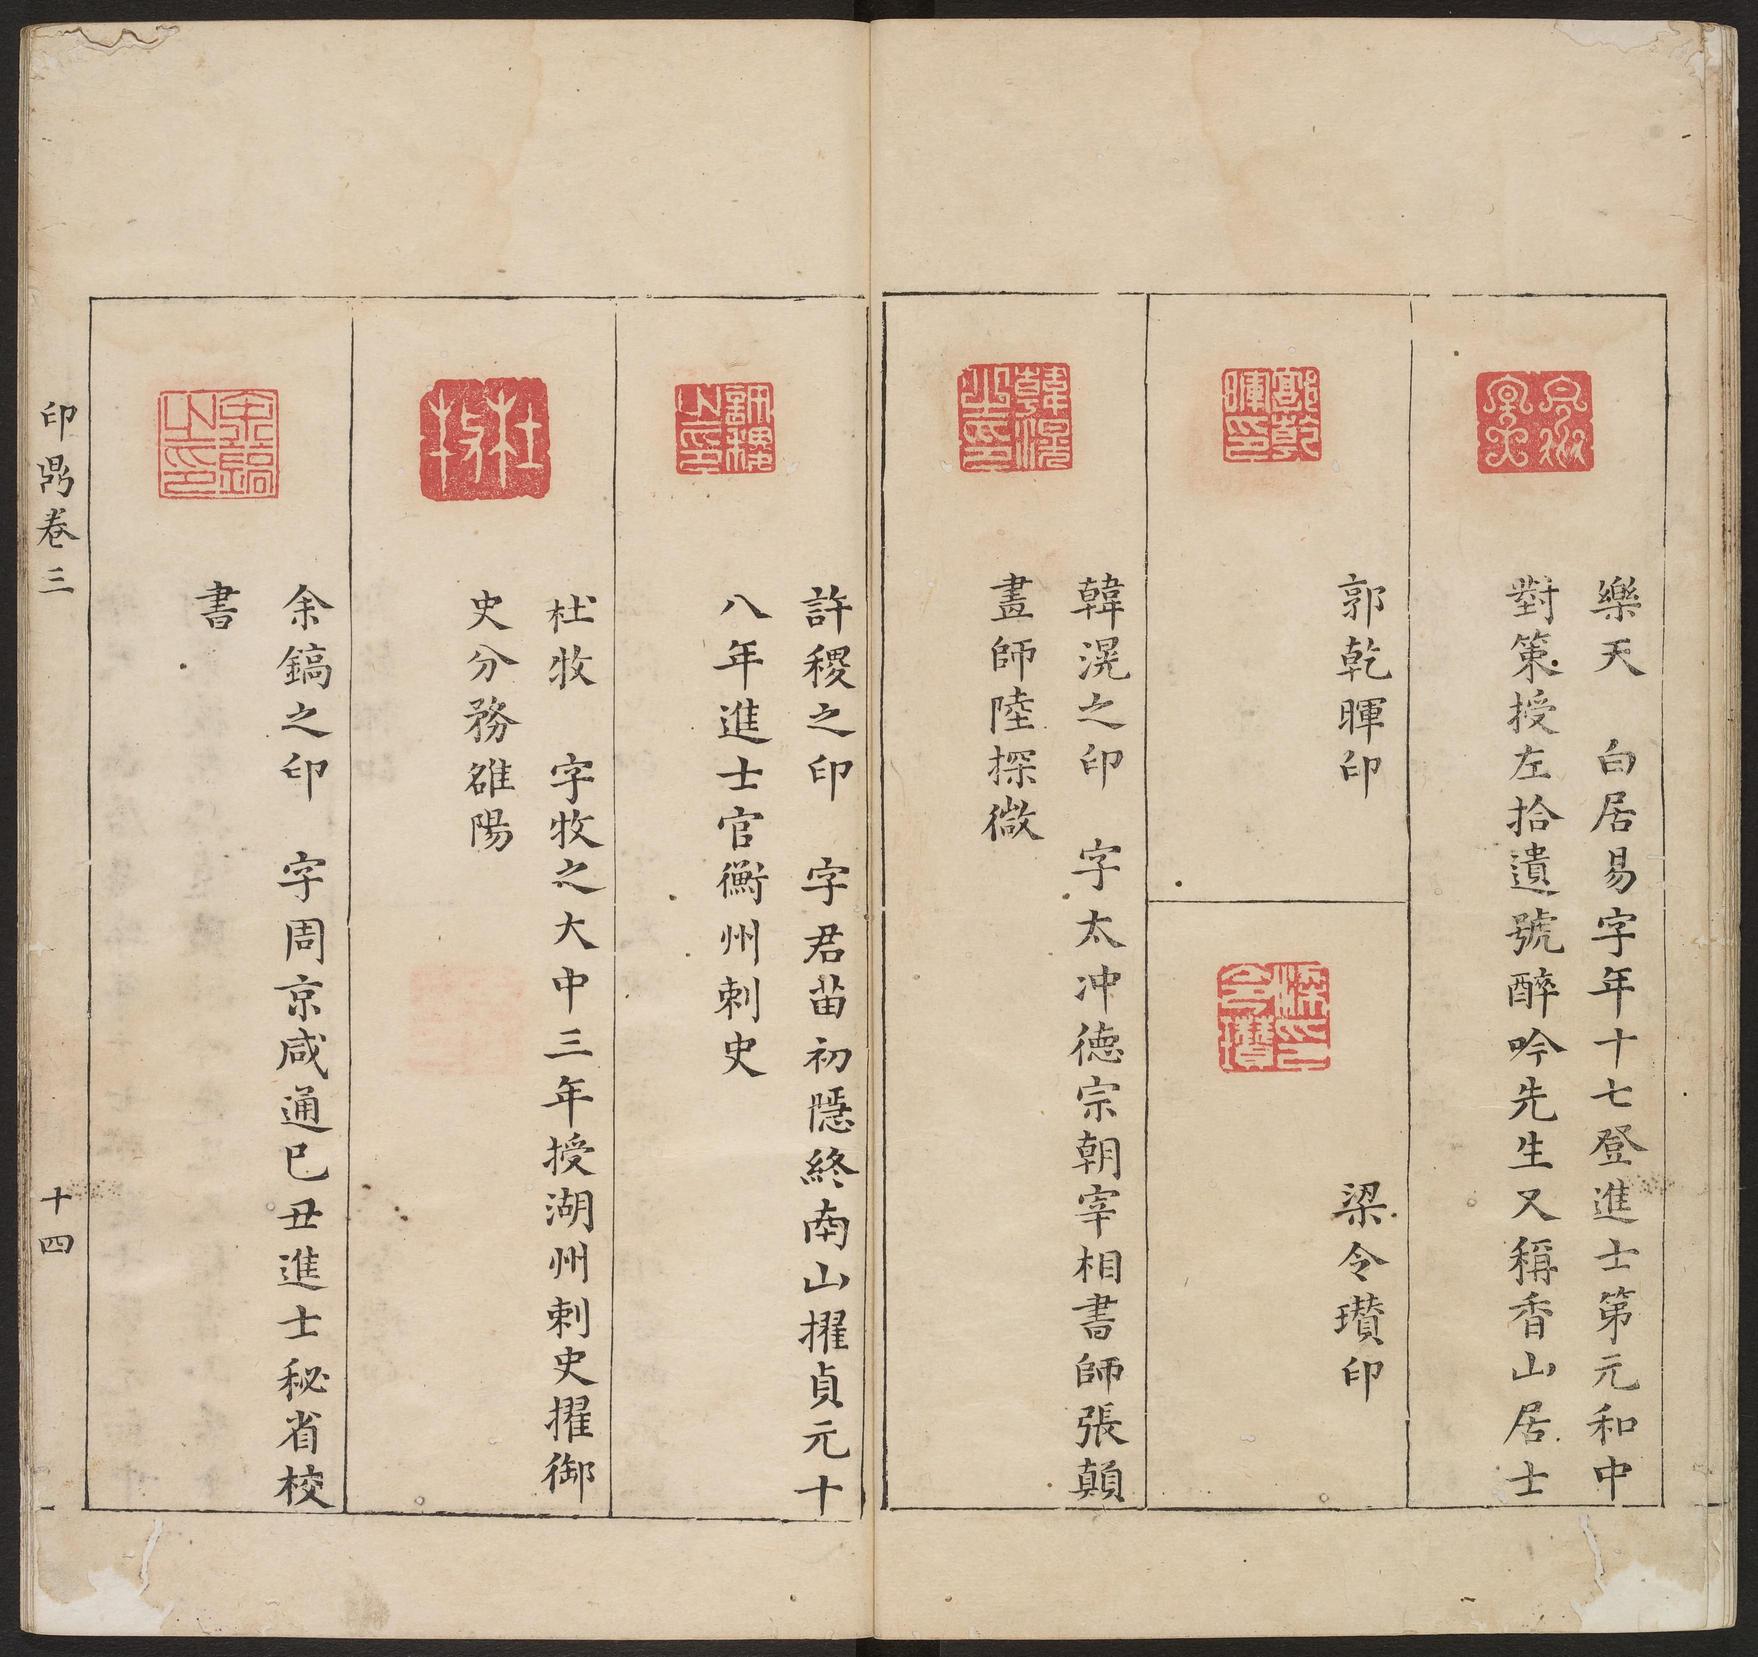 樂天　白居易字年十七登進士第元和中
對策授左拾遺號醉吟先生又稱香山居士
郭乾暉印
梁令瓚印
韓滉之印　字太冲德宗朝宰相書師張顛
畫師陸探微
許稷之印　字君苗初隱終南山擢貞元十
八年進士官衡州刺史
杜牧　字牧之大中三年授湖州刺史擢御
史分務雒陽
余鎬之印　字周京咸通巳丑進士秘省校
書
印鼎卷三
十四